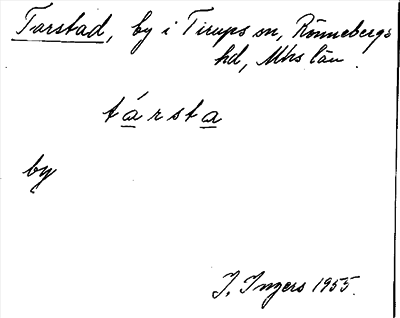 Tarstad, by i Tirups sn, Rönnebergs
hd, Mhs län.
tá̲rsta̲
by
I. Ingers 1955.